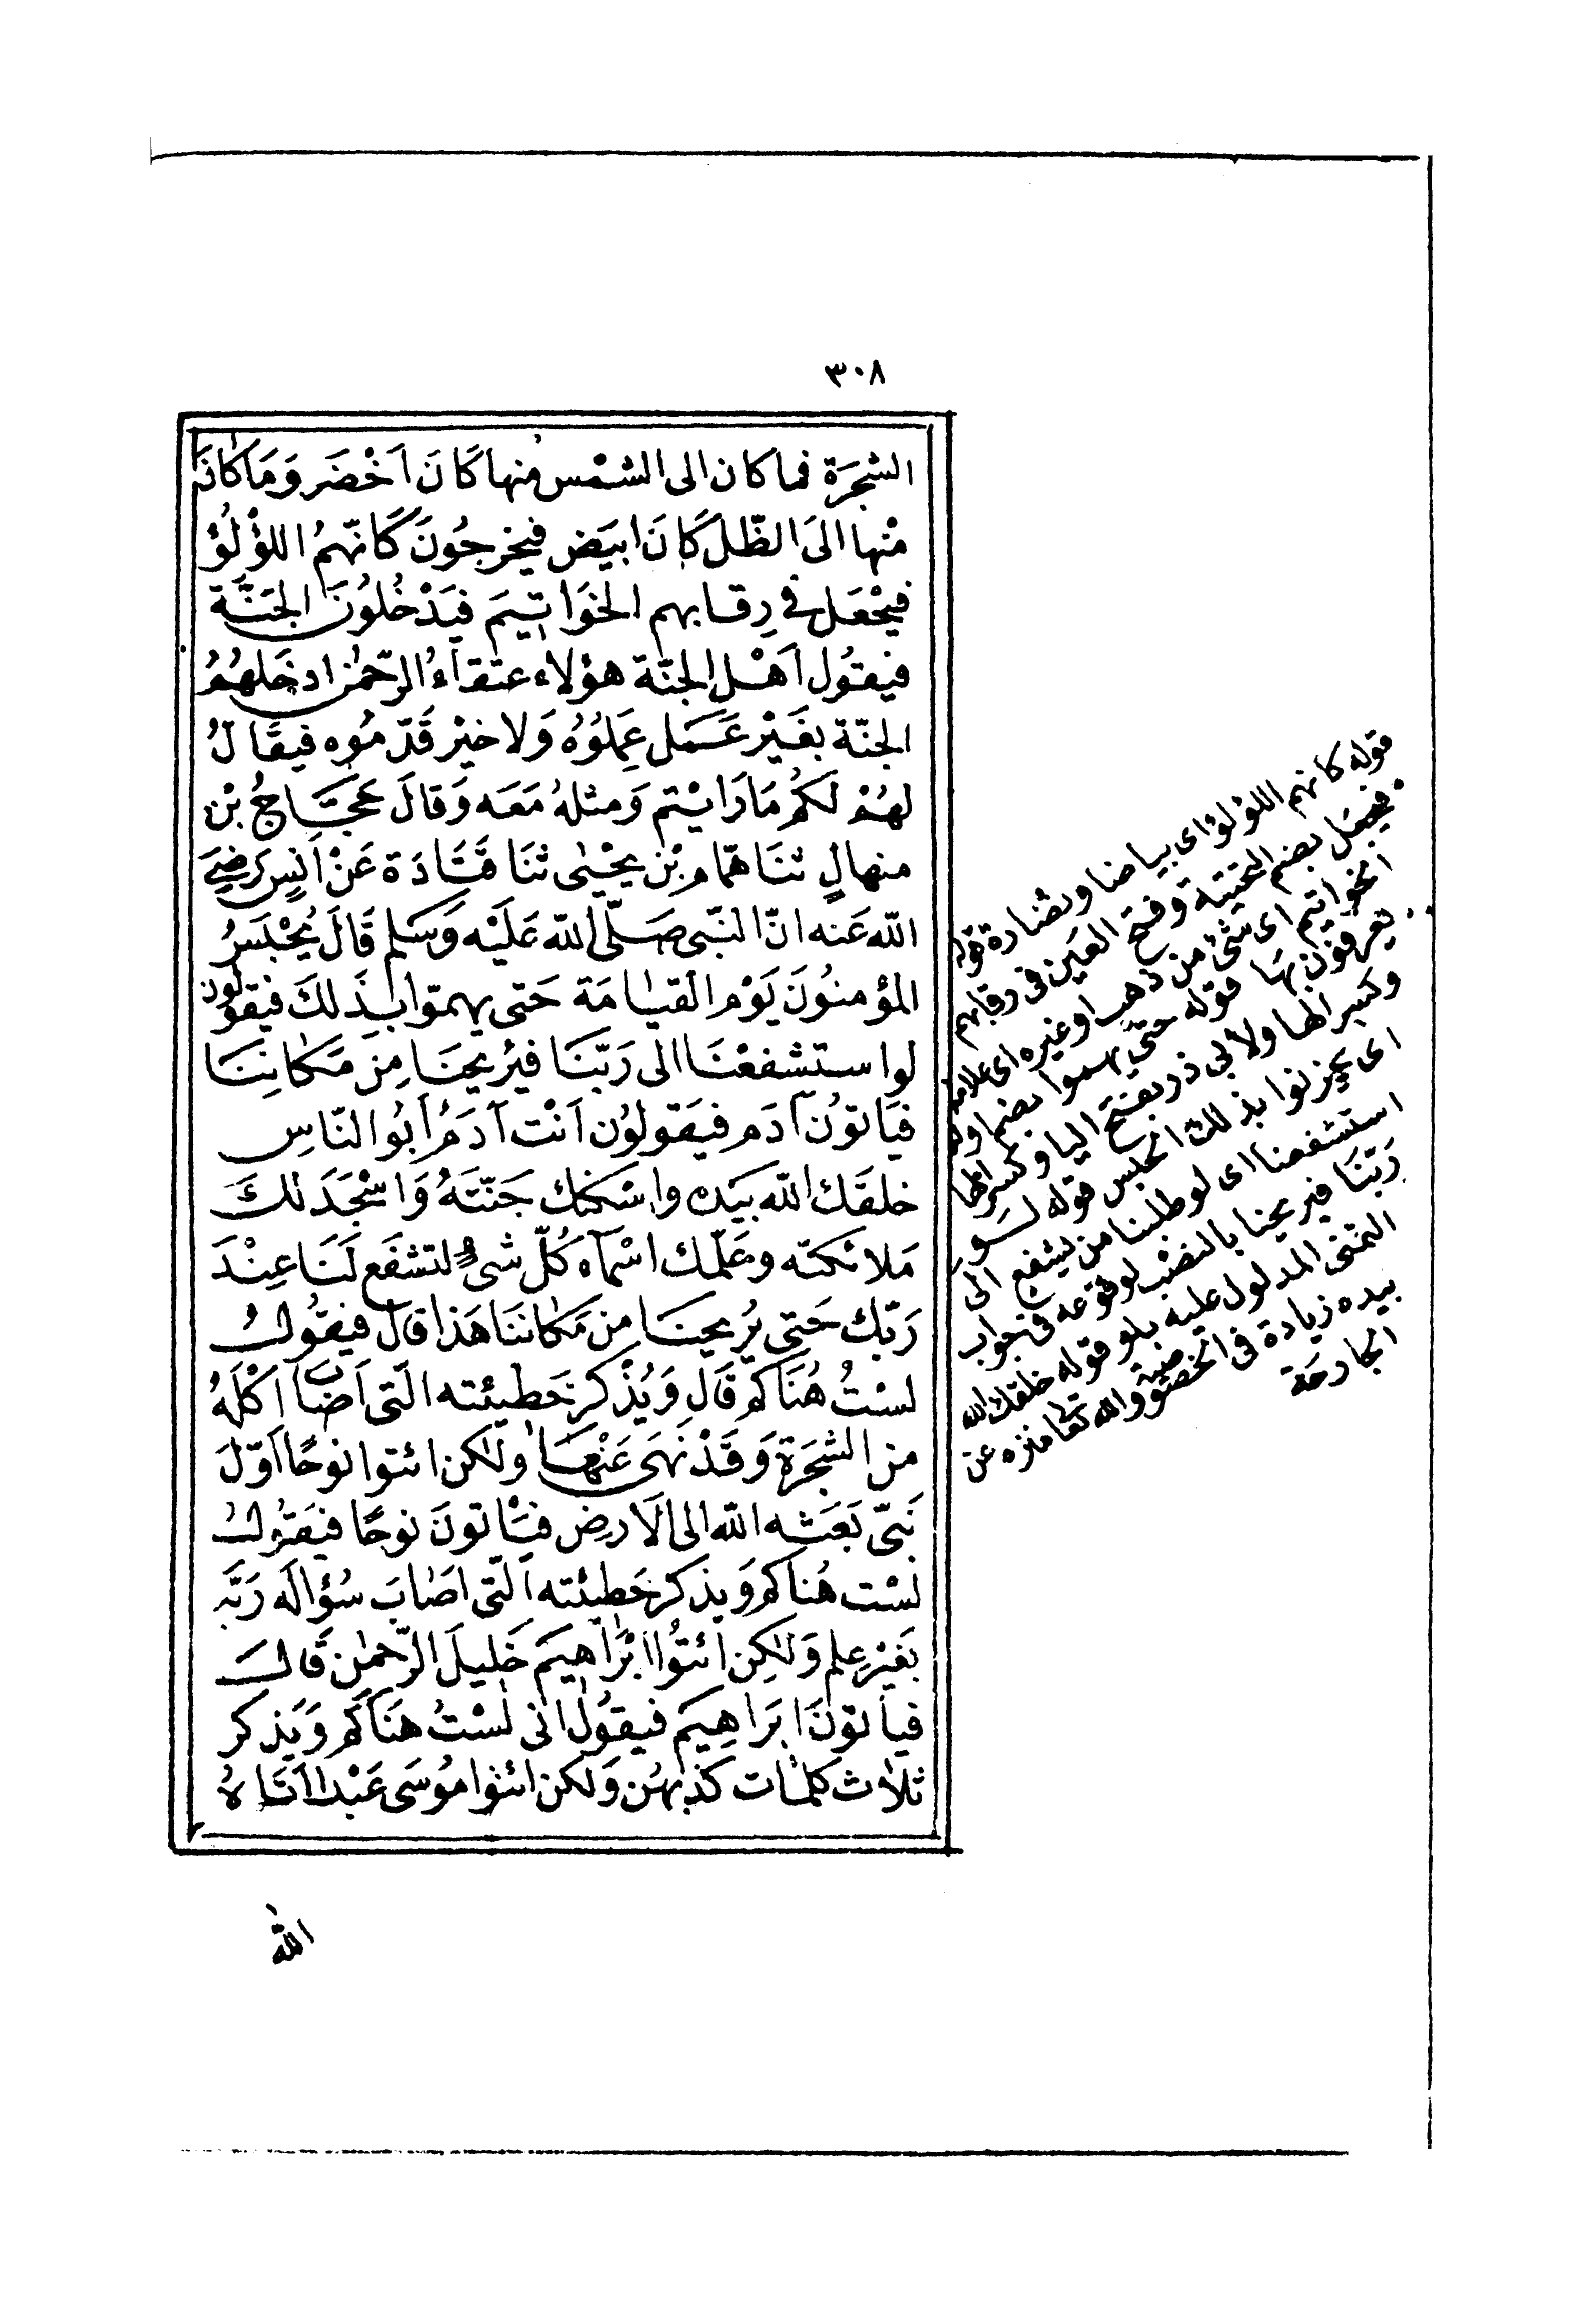 ٣٠٨
الشجَرَة فما كان الى الشمْس منها كَانَ اَخْضَر وَمَا كَانَ
مْنها الىَ الظّل كَانَ ابيَض فيخرجُونَ كَانّهمُ اللؤْلُؤ
فيجْعَل فى رِقابهم الخوَاتيمَ فيَدْخُلوُنَ الجنَّة
فيقوُل اَهْل الجنّة هؤلاء عتقاءُ الرّحمٰن ادخَلهُمُ
الجنّة بغَيْر عَمَل عَمِلوُهُ وَلا خيْر قَدّمُوه فيقَالُ
لهُمْ لَكُمْ مَا رَايْتم وَمثلهُ مَعَه وَقالَ حَجَّاجُ بْن
منهالٍ ثنَا همّام بْن يحْيٰى ثنَا قَتَادَة عَنْ اَنسٍ رَضِىَ
الله عَنه انّ النّبى صَلّى الله عَلَيْه وَسَلم قَالَ يُحْبَسُ
المؤمنوُنَ يَوْم القيٰامَة حَتى يهمّوا بذَلكَ فيقولون
لو استشفعْنَا الى رَبّنَا فيُريحنَا مِن مَكانِنَا
فيَاتوُنَ آدَم فيَقولوُن اَنْت آدَمُ اَبُو النّاسِ
خلقَك الله بيَده واسْكنك جَنّتَهُ وَاسْجَدَ لكَ
مَلائكتَه وعَلّمك اَسْمَآء كُلّ شىءٍ لتشفَع لَنَا عِنْدَ
رَبّك حَتى يُريحنَا مِن مَكاننَا هَذا قالَ فيقُولُ
لسْتُ هُنَاكم قَال وَيُذْكر خَطيئته الّتى اَصَاب اَكْلَهُ
من الشجَرَة وَقَدْ نُهىَ عَنْهَا ولٰكن ائتوا نوحًا اَوّلَ
نَبّى بَعَثه الله الى الَارض فيَاتونَ نوحًا فيَقوُل
لَسْت هُناكم وَيذكر خَطيئته الّتى اصَابَ سُؤالَه رَبَّه
بغَيْر علم وَلٰكِن ائتُوا ابْرَاهيمَ خَليلَ الرّحمٰن قَالَ
فيَاتوُنَ ابرَاهِيمَ فيقوُل انى لَسْتُ هنَاكم وَيَذكر
ثلاث كلمٰات كذبهُن وَلكن ائتوا مُوسَى عَبْدا اتَاهُ
الله
قوله كانهم اللؤلؤ اى بياضا ونضارة قوله
فيجعل بضم التحتية وفتح العين فى رقابهم
الخواتيم اى شئ من ذهب او غيره اى علامة
يعرفون بها قوله حتى يهموا بضم اوله
وكسر الها ولابى ذر بفتح اليا وكسر الها
اى يحزنوا بذلك الحبس قوله لو
استشفعنا اى لو طلبنا من يشفع الى
رَبّنَا فيريحنا بالنصْب لوقوعه فى جواب
التمنى المدلول عليه بلو قوله خلقك الله
بيده زيادة فى الخصوصية والله تعا منزه عن
الجارحة